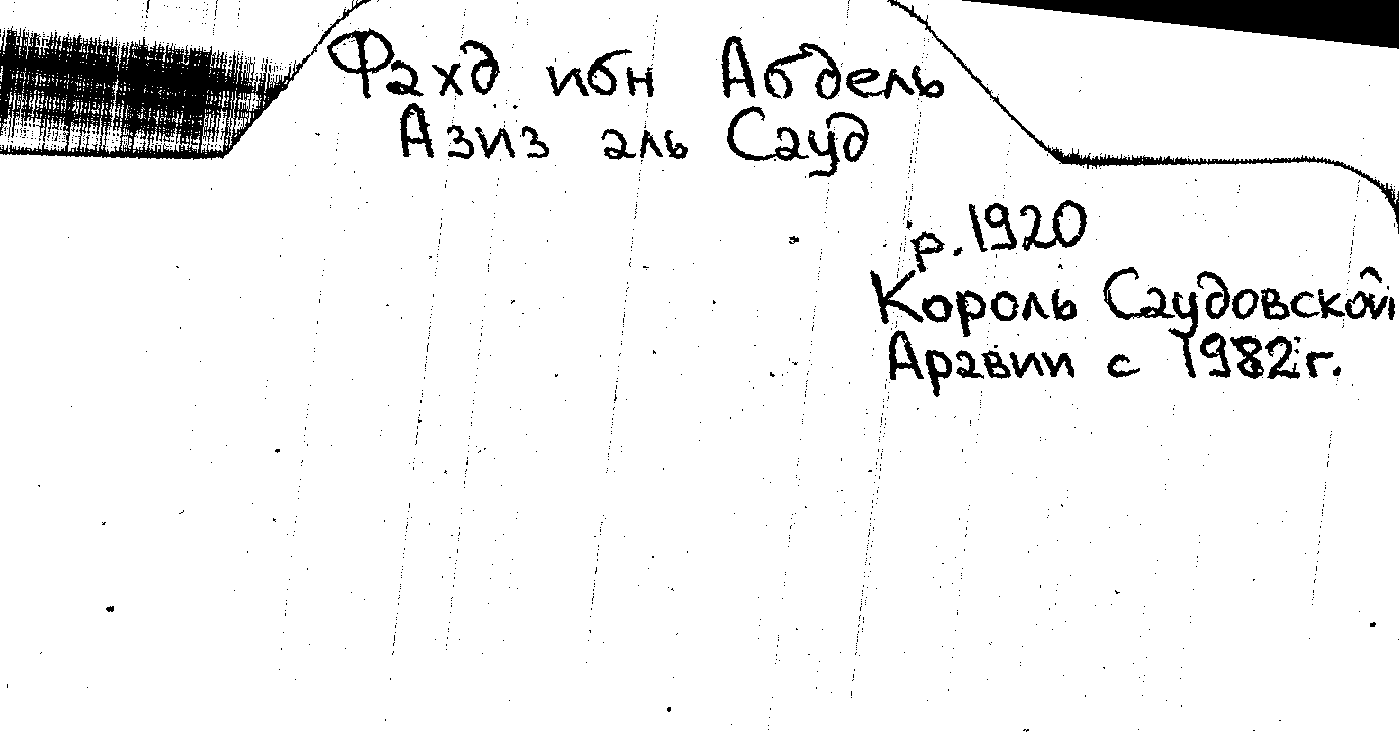 Фахд ибн Абдель
Азиз аль Сауд
р. 1920
Король Саудовской
Аравии с 1982 г.